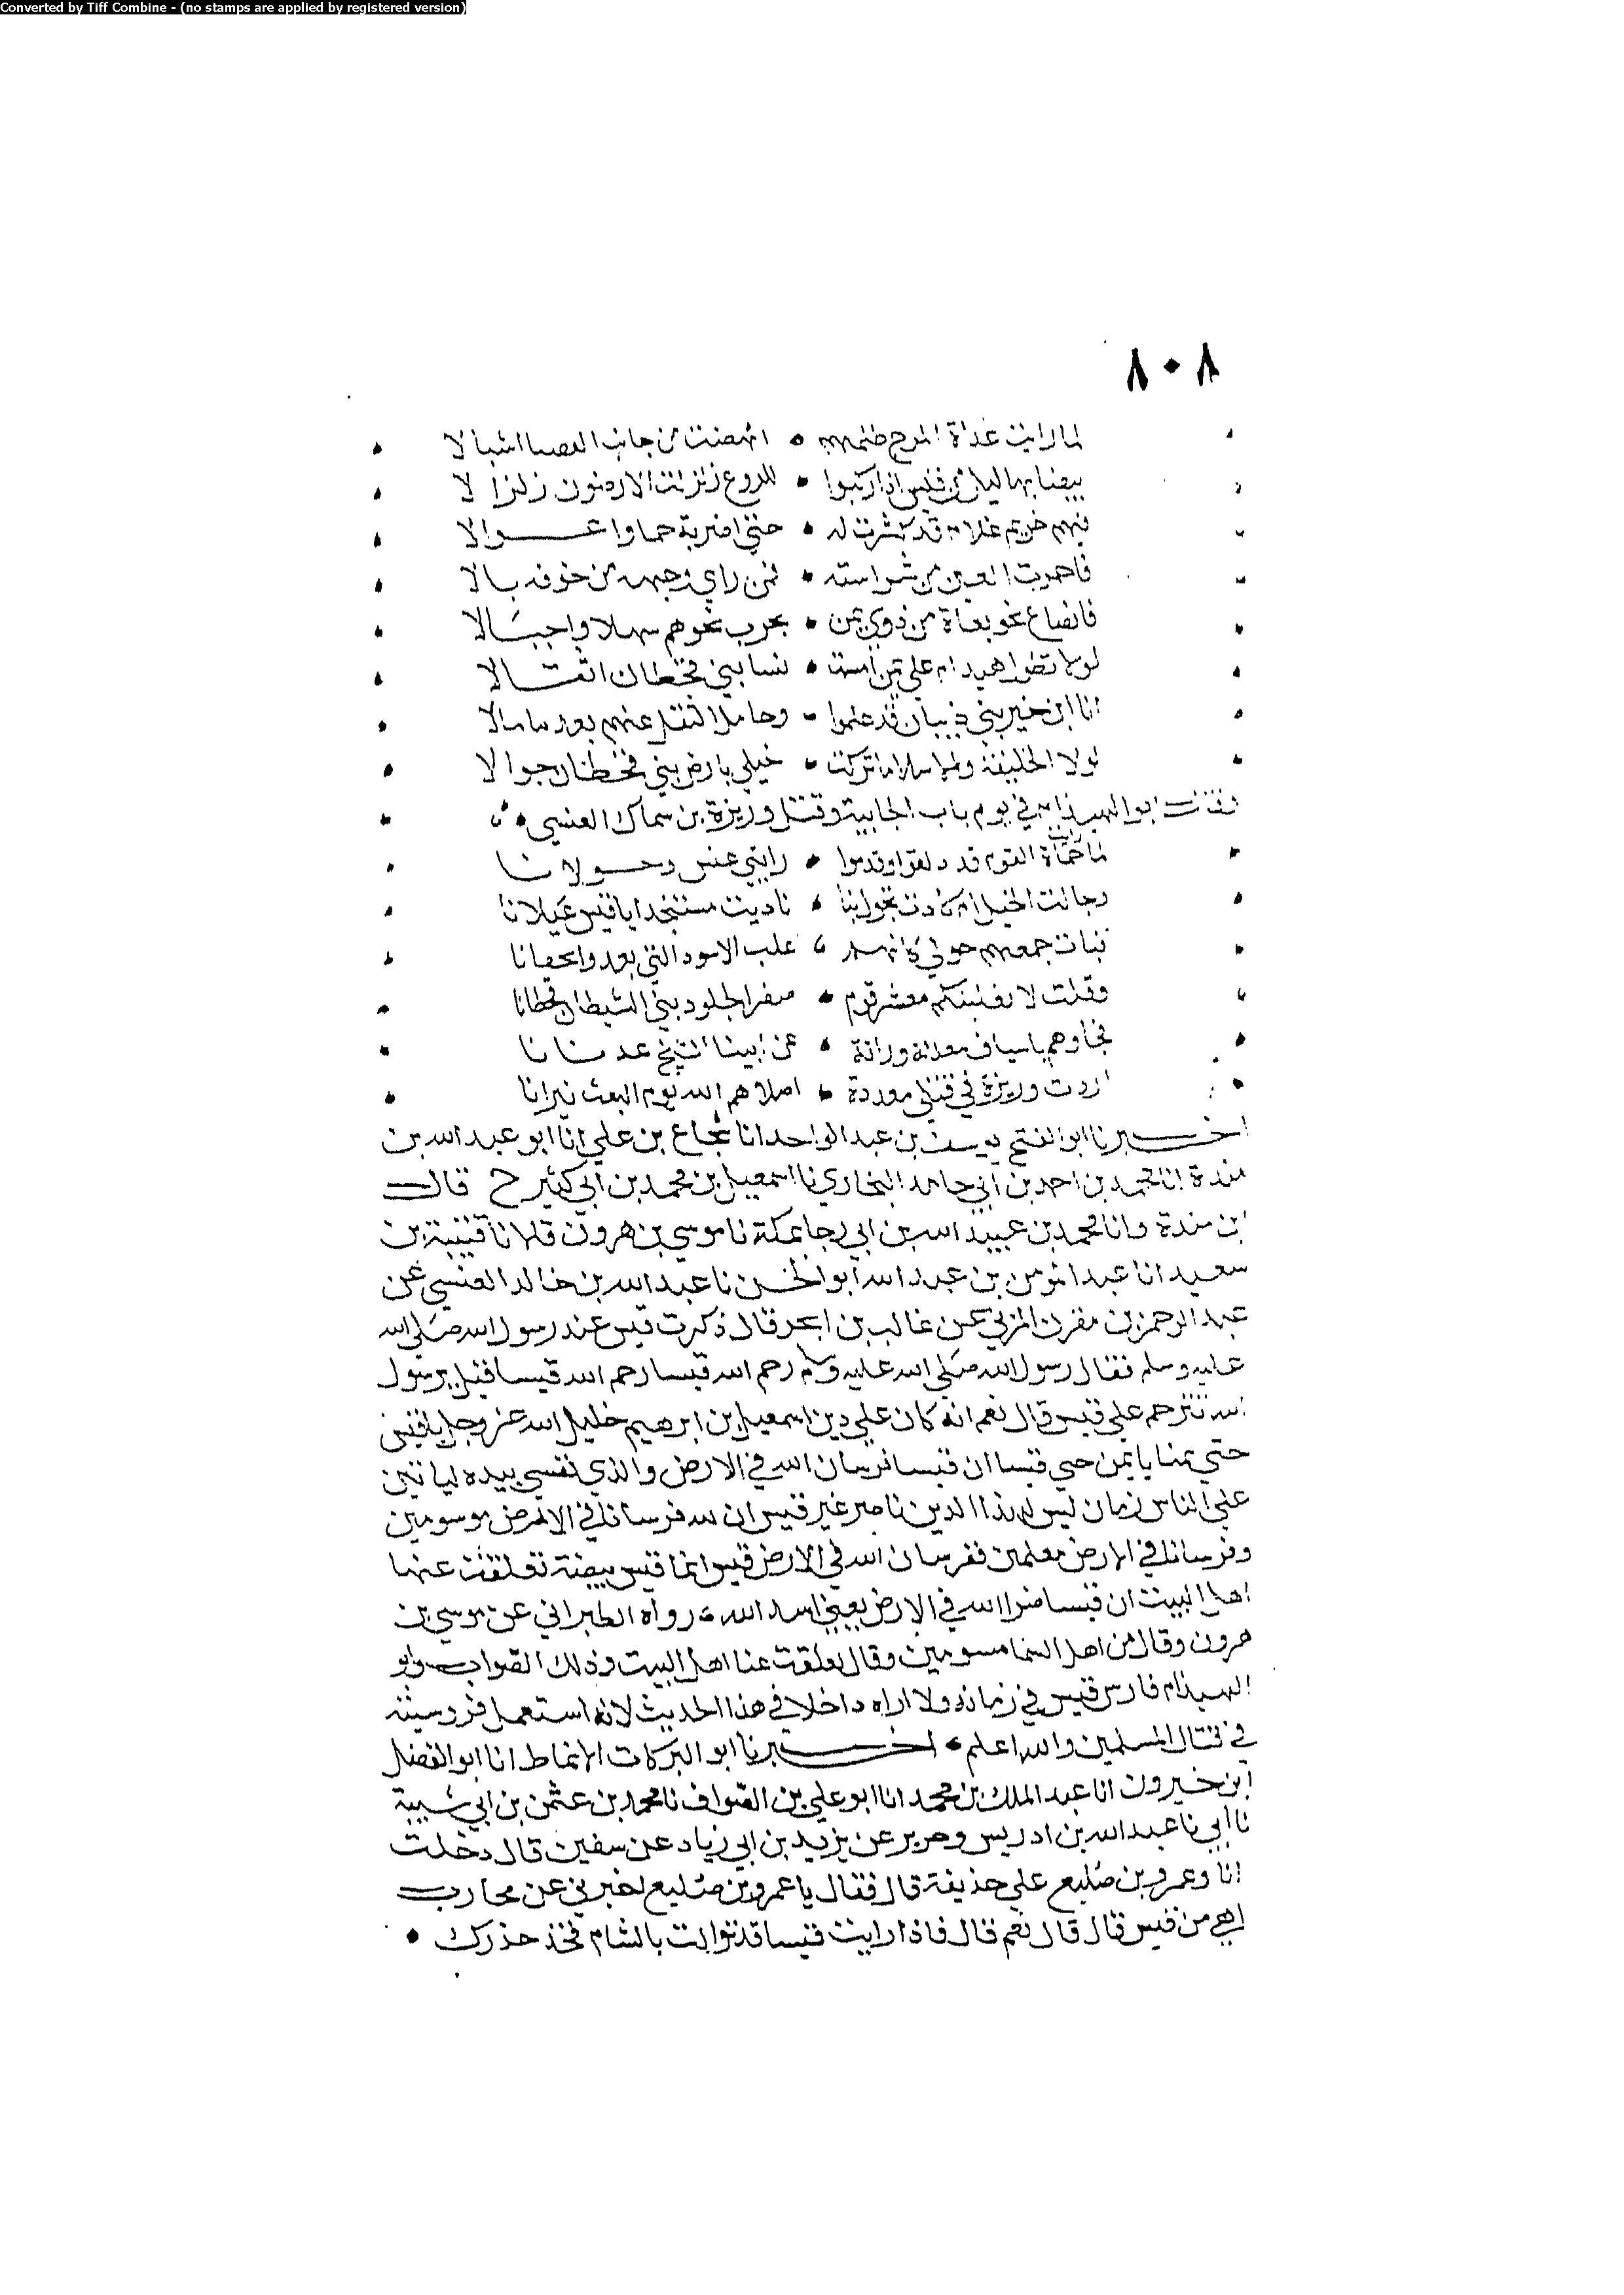 Converted by Tiff Combine - (no stamps are applied by registered version)
٨٠٨
لما رايت غداة المرج ضمهم • انهضت من جانب العصا اشبالا
بيضا بهاليل من قيس اذا ركبوا • للروع زلزلت الارضون زلزالا
فيهم خريم غلام قد كشرت له • حتى اضربة حما واعوالا
فاحمرت العين من شراسته • فمن راي وجهه من خوفه بالا
فانصاع نحو بغاة من ذوي يمن • بحرب نحوهم سهلا واجبالا
لولا هيدام على يمن امست • نسا بني قحطان
انا ابن خير بني ذبيان قد علموا • وحامل الثقل عنهم بعد ما مالا
لولا الخليفة والاسلام ما تركت • خيلي بارض بني قحطان جوالا
فقال ابو الهيذام في يوم باب الجابية وقتل وريزة بن سماك العنسي •
لما رايت حماة القوم قد دلفوا وقدموا • رايتي عنس وخولانا
وجالت الخيل ام كادت تجول بنا • ناديت مستنجدا يا قيس عيلانا
جمعهم حولي كانهم • غلب الاسود التي
وقلت لا يغلبنكم معشر قزم • صفر الجلود بني الشيطان قحطانا
فجاوهم باسياف ورانة • عن ابينا الشيخ عدنانا
اردت وريزة في قتلى موردة • اصلاهم الله يوم البعث نيرانا
اخبرنا ابو الفتح يوسف بن عبد الواحد انا شجاع بن علي انا ابو عبد الله بن
مندة انا محمد بن احمد بن ابي حامد البخاري نا اسمعيل بن محمد بن ابي كثير ح قال
ابن مندة وانا محمد بن عبيد الله بن ابي رجا بمكة نا موسي بن هرون قالا نا قتيبة بن
سعيد انا عبد المومن بن عبد الله ابو الحسن نا عبد الله بن خالد العنسي عن
عبد الرحمن بن مقرن المزني عن غالب بن ابجر قال ذكرت قيس عند رسول الله صلى الله
عليه وسلم فقال رسول الله صلى الله عليه وسلم رحم الله قيسا رحم الله قيسا فقيل يرسول
الله تترحم علي قيس قال نعم انه كان علي دين اسمعيل بن ابرهيم خليل الله عز وجل يا قيس
حتي يمنا يا يمن حيي قيسا ان قيسا فرسان الله في الارض والذي نفسي بيده لياتين
علي الناس زمان ليس لهذا الدين ناصر غير قيس ان لله فرسانا في الارض موسومين
وفرسانا في الارض معلمين ففرسان الله في الارض قيس انما قيس بيضة تفلقت عنها
اهل البيت ان قيسا ضرا الله في الارض يعني اسد الله • رواه الطبراني عن موسي بن
هرون وقال من اهل السما مسومين وقال تفلقت عنا اهل البيت وذلك الصواب وابو
الهيذام فارس قيس في زمانه ولا اراه داخلا في هذا الحديث لانه استعمل فروسيته
في قتال المسلمين والله اعلم • اخبرنا ابو البركات الانماط انا ابو الفضل
ابن خيرون انا عبد الملك بن محمد انا ابو علي بن الصواف نا محمد بن عثمن بن ابي شيبة
نا ابي نا عبد الله بن ادريس وجرير عن يزيد بن ابي زياد عن سفين قال دخلت
انا وعمرو بن صليع علي حذيفة قال فقال يا عمرو بن صليع اخبرني عن محارب
اهي من قيس قال قال نعم قال فاذا رايت قيسا قد توالت بالشام فخذ حذرك •